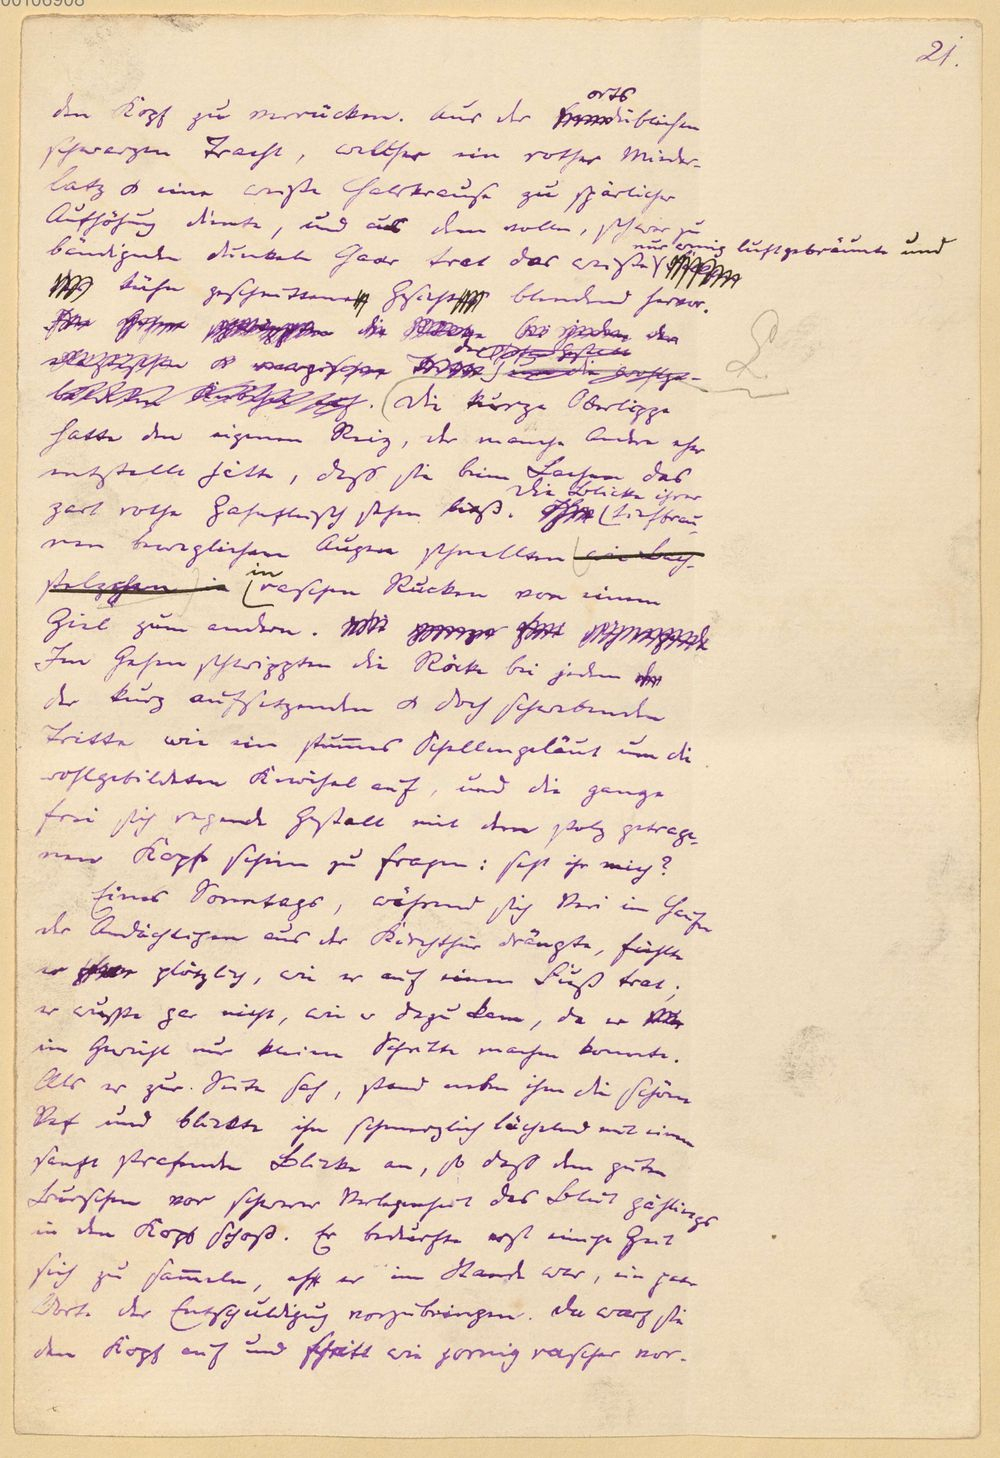 00106908
21.
den Kopf zu verrücken. Aus der ortsüblichen
schwarzen Tracht, welcher ein rother Mieder-
latz & eine weiße Halskrause zu spärlicher
Aufhöhung diente, und aus dem vollen, schwer zu
bändigenden dunkeln Haar trat das weiße, nur wenig luftgebräunte und
kühn geschnittene Gesicht blendend hervor.
die bei jedem der
Die kurze Oberlippe
hatte den eigenen Reiz, der manche Andere eher
entstellt hätte, daß sie beim Lachen das
zart rothe Zahnfleisch sehen ließ. Die Blicke ihrer tiefbrau-
nen beweglichen Augen schnellten ein Bach-
stelzchen in raschen Rucken von einem
Ziel zum andern.
Im Gehen schwippten die Röcke bei jedem
der kurz aufsitzenden & doch schwebenden
Tritte wie ein stummes Schellengeläut um die
wohlgebildeten Knöchel auf, und die ganze
frei sich regende Gestalt mit dem stolz getrage-
nen Kopfe schien zu fragen: seht ihr mich?
Eines Sonntags, während sich Veri im Haufen
der Andächtigen aus der Kirchthür drängte, fühlte
er plötzlich, wie er auf einen Fuß trat;
er wußte gar nicht, wie er dazu kam, da er
im Gewühl nur kleine Schritte machen konnte.
Als er zur Seite sah, stand neben ihm die schöne
Vef und blickte ihn schmerzlich lächelnd mit einem
sanft strafenden Blicke an, so daß dem guten
Burschen vor schwerer Verlegenheit das Blut gählings
in den Kopf schoß. Er bedurfte erst einige Zeit
sich zu sammeln, eh er im Stande war, ein paar
Worte der Entschuldigung vorzubringen. Da warf sie
den Kopf auf und schritt wie zornig rascher vor-